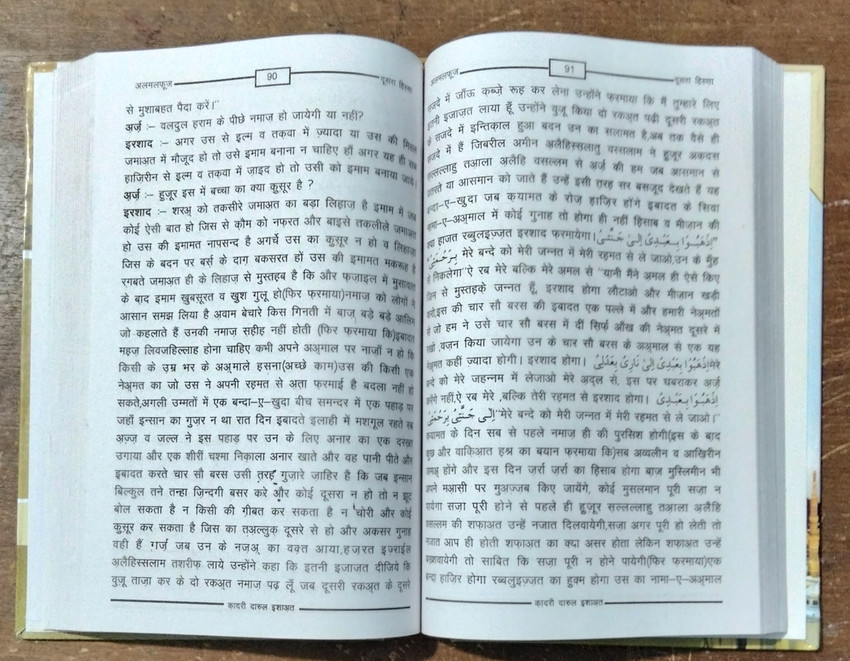 अलमलफूज़ 90 दूसरा हिस्सा
से मुशाबहत पैदा करें।"
अर्ज़ :– वलदुल हराम के पीछे नमाज़ हो जायेगी या नहीं?
इरशाद :– अगर उस से इल्म व तक़वा में ज़्यादा या उस की मिस्ल
जमाअ़त में मौजूद हो तो उसे इमाम बनाना न चाहिए हाँ अगर यह ही सब
हाज़िरीन से इल्म व तक़वा में ज़ाइद हो तो उसी को इमाम बनाया जाये।
अर्ज़ :– हुज़ूर इस में बच्चा का क्या क़ुसूर है ?
इरशाद :– शरअ़ को तकसीरे जमाअ़त का बड़ा लिहाज़ है इमाम में जब
कोई ऐसी बात हो जिस से क़ौम को नफ़रत और बाइसे तक़लीले जमाअ़त
हो उस की इमामत नापसन्द है अगर्चे उस का क़ुसूर न हो व लिहाज़ा
जिस के बदन पर बर्स के दाग़ बकसरत हों उस की इमामत मकरूह है
रग़बते जमाअ़त ही के लिहाज़ से मुस्तहब है कि और फ़ज़ाइल में मुसावात
के बाद इमाम ख़ुबसूरत व खुश गुलू हो(फिर फ़रमाया)नमाज़ को लोगों ने
आसान समझ लिया है अ़वाम बेचारे किस गिनती में बाज़ बड़े बड़े आलिम
जो कहलाते हैं उनकी नमाज़ सहीह नहीं होती (फिर फ़रमाया कि)इबादत
महज़ लिवजहिल्लाह होना चाहिए कभी अपने अअ़माल पर नाज़ाँ न हो कि
किसी के उम्र भर के अअ़माले हसना(अच्छे काम)उस की किसी एक
नेअ़मत का जो उस ने अपनी रहमत से अ़ता फ़रमाई है बदला नहीं हो
सकते,अगली उम्मतों में एक बन्दा–ए–ख़ुदा बीच समन्दर में एक पहाड़ पर
जहाँ इन्सान का गुज़र न था रात दिन इबादते इलाही में मशगूल रहते रब
अज़्ज़ व जल्ल ने इस पहाड़ पर उन के लिए अनार का एक दरख़्त
उगाया और एक शीरीं चश्मा निकाला अनार खाते और वह पानी पीते और
इबादत करते चार सौ बरस उसी त़रह़ गुज़ारे ज़ाहिर है कि जब इन्सान
बिल्कुल तने तन्हा ज़िन्दगी बसर करे और कोई दूसरा न हो तो न झूट
बोल सकता है न किसी की ग़ीबत कर सकता है न चोरी और कोई
क़ुसूर कर सकता है जिस का तअ़ल्लुक़ दूसरे से हो और अकसर गुनाह
वही हैं ग़र्ज़ जब उन के नज़अ़ का वक़्त आया,हज़रत इज़राईल
अलैहिस्सलाम तशरीफ़ लाये उन्होंने कहा कि इतनी इजाज़त दीजिये कि
वुज़ू ताज़ा कर के दो रकअ़त नमाज़ पढ़ लूँ जब दूसरी रकअ़त के दूसरे
क़ादरी दारुल इशाअत
अलमलफूज़ 91 दूसरा हिस्सा
सजदे में जाँऊ क़ब्ज़े रूह कर लेना उन्होंने फ़रमाया कि मैं तुम्हारे लिए
इतनी इजाज़त लाया हूँ उन्होंने वुज़ू किया दो रकअ़त पढ़ी दूसरी रकअ़त
के सजदे में इन्तिक़ाल हुआ बदन उन का सलामत है,अब तक वैसे ही
सजदे में हैं जिबरील अमीन अलैहिस्सलातु वस्सलाम ने हुज़ूर अक़दस
सल्लल्लाहु तआला अलैहि वसल्लम से अर्ज़ की हम जब आसमान से
उतरते या आसमान को जाते हैं उन्हें इसी त़रह सर बसजूद देखते हैं यह
बन्दा–ए–ख़ुदा जब क़यामत के रोज़ हाज़िर होंगे इबादत के सिवा
नामा–ए–अअ़माल में कोई गुनाह तो होगा ही नहीं हिसाब व मीज़ान की
क्या हाजत रब्बुलइज़्ज़त इरशाद फ़रमायेगा। اِذْهَبُوْا بِعَبْدِىْ اِلىٰ جَنَّتِىْ"
بِرَحْمَتِىْ" मेरे बन्दे को मेरी जन्नत में मेरी रहमत से ले जाओ,उन के मुँह
से निकलेगा"ऐ रब मेरे बल्कि मेरे अमल से "यानी मैंने अमल ही ऐसे किए
जिन से मुस्तहक़े जन्नत हूँ, इरशाद होगा लौटाओ और मीज़ान खड़ी
करो,इस की चार सौ बरस की इबादत एक पल्ले में और हमारी नेअ़मतों
से जो हम ने उसे चार सौ बरस में दीं सिर्फ़ आँख की नेअ़मत दूसरे में
रखो ,वज़न किया जायेगा उन के चार सौ बरस के अअ़माल से एक यह
नेअ़मत कहीं ज़्यादा होगी। इरशाद होगा। اِذْهَبُوْا بِعَبْدِىْ اِلىٰ نَارِىْ بِعَدْلِىْ मेरे
बन्दे को मेरे जहन्नम में लेजाओ मेरे अदल से, इस पर घबराकर अर्ज़
करेंगे नहीं,ऐ रब मेरे ,बल्कि तेरी रहमत से इरशाद होगा। اِذْهَبُوْا بِعَبْدِىْ
اِلىٰ جَنَّتِىْ بِرَحْمَتِىْ"मेरे बन्दे को मेरी जन्नत में मेरी रहमत से ले जाओ।"
क़यामत के दिन सब से पहले नमाज़ ही की पुरसिश होगी(इस के बाद
कुछ और वाक़िआ़त हश्र का बयान फ़रमाया कि)सब अव्वलीन व आख़िरीन
जमअ़ होंगे और इस दिन ज़र्रा ज़र्रा का हिसाब होगा बाज़ मुस्लिमीन भी
अपने मआ़सी पर मुअ़ज़्ज़ब किए जायेंगे, कोई मुसलमान पूरी सज़ा न
पायेगा सज़ा पूरी होने से पहले ही हुज़ूर सल्लल्लाहु तआ़ला अलैहि
वसल्लम की शफ़ाअ़त उन्हें नजात दिलवायेगी,सज़ा अगर पूरी हो लेती तो
नजात आप ही होती शफ़ाअ़त का क्या असर होता लेकिन शफ़ाअ़त उन्हें
बख़्शवायेगी तो साबित कि सज़ा पूरी न होने पायेगी(फिर फ़रमाया)एक
बन्दा हाज़िर होगा रब्बुलइज़्ज़त का हुक्म होगा उस का नामा–ए–अअ़माल
क़ादरी दारुल इशाअत